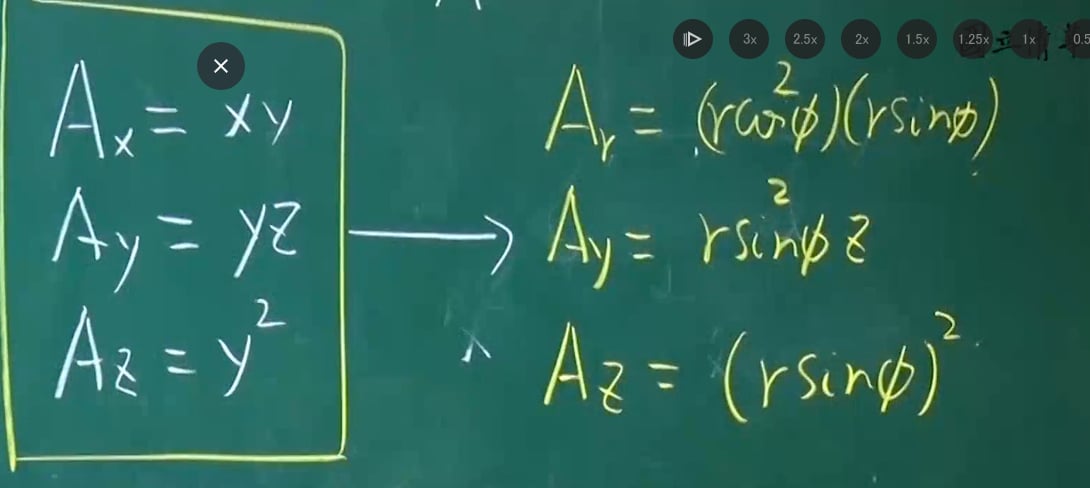 3x 2.5x 2x 1.5x 1.25x 1x 0.5
Aₓ = xy
A_y = yz
A_z = y²
A_r = (r cos²φ)(r sinφ)
A_y = r sin²φ z
A_z = (r sinφ)²